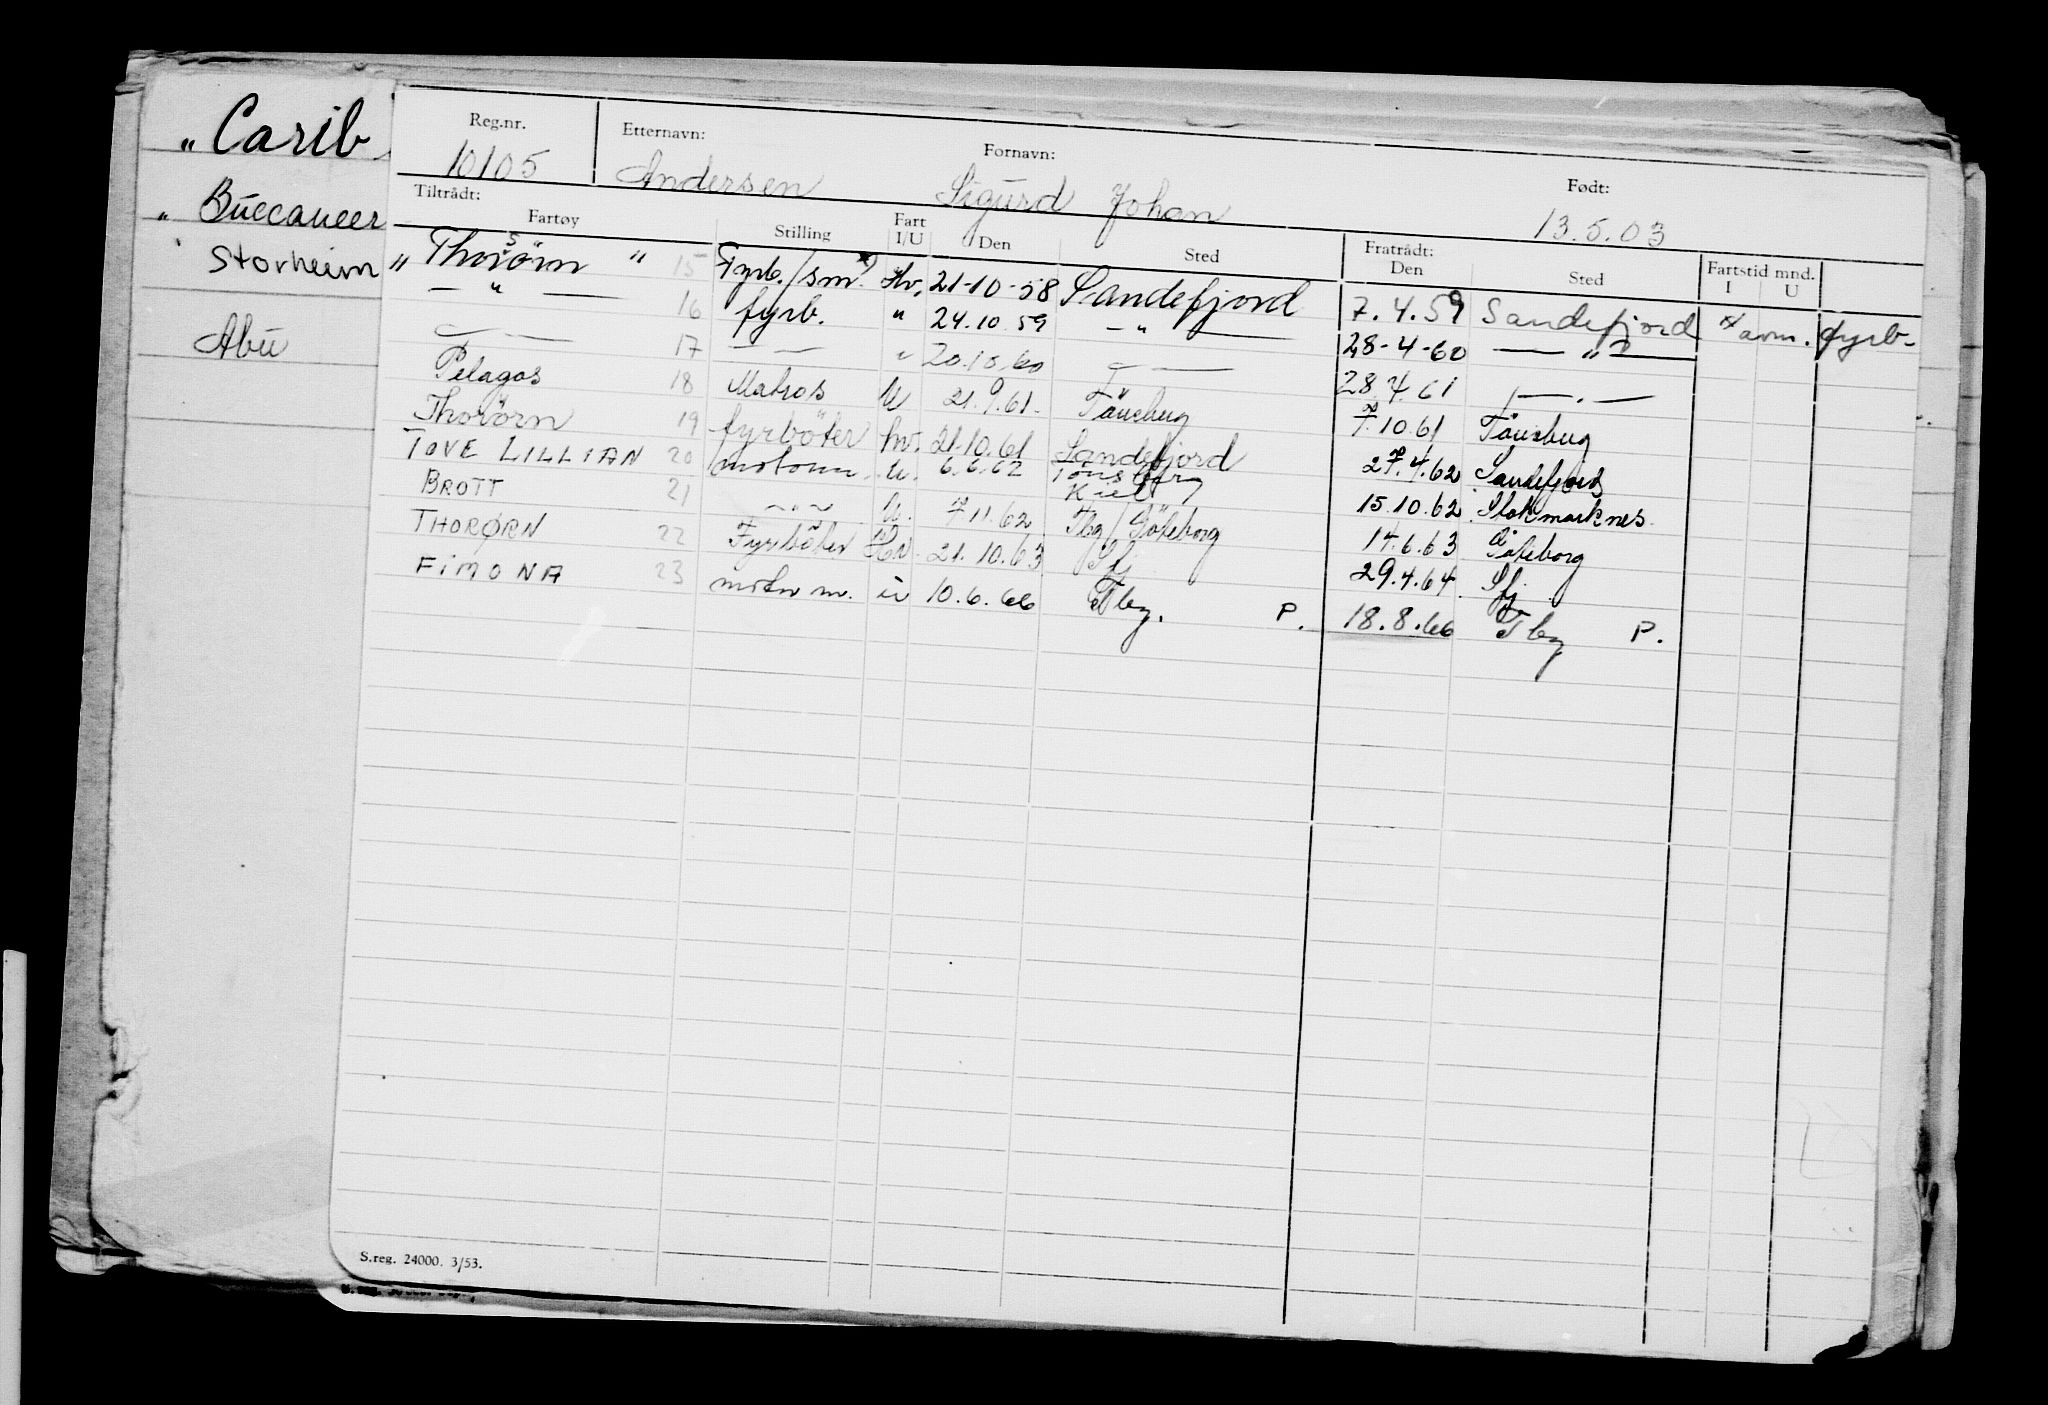 „ Carib
„ Buccaneer
Storheim
Abu
Reg.nr. Etternavn: Fornavn: Født:
10105 Andersen Sigurd Johan 13.5.03
Tiltrådt: Fratrådt:
Fartøy Stilling Fart I/U Den Sted Den Sted Fartstid mnd. I U
„ Thorörn " 15 Fyrb./sm. x) Hv. 21-10-58 Sandefjord 7.4.59 Sandefjord x avm. fyrb-
— " — 16 fyrb. " 24.10.59 — " — 28-4-60 — " —
— — 17 — — " 20.10.60 — — 28.4.61 — " —
Pelagos 18 Matros U 21.9.61. Tönsberg 7.10.61 Tönsberg
Thorörn 19 fyrböter hv. 21.10.61 Sandefjord 27.4.62 Sandefjord
TOVE LILLIAN 20 motorm. U. 6.6.62 Tönsberg Kiel 15.10.62 Stokmarknes
BROTT 21 — " — U. 7.11.62 Tbg/Göteborg 14.6.63 Göteborg
THORØRN 22 Fyrböter HV. 21.10.63 Sfj 29.4.64. Sfj.
FIMONA 23 motor m. u 10.6.66 Tbg. P. 18.8.66 Tbg P.
S.reg. 24000. 3/53.